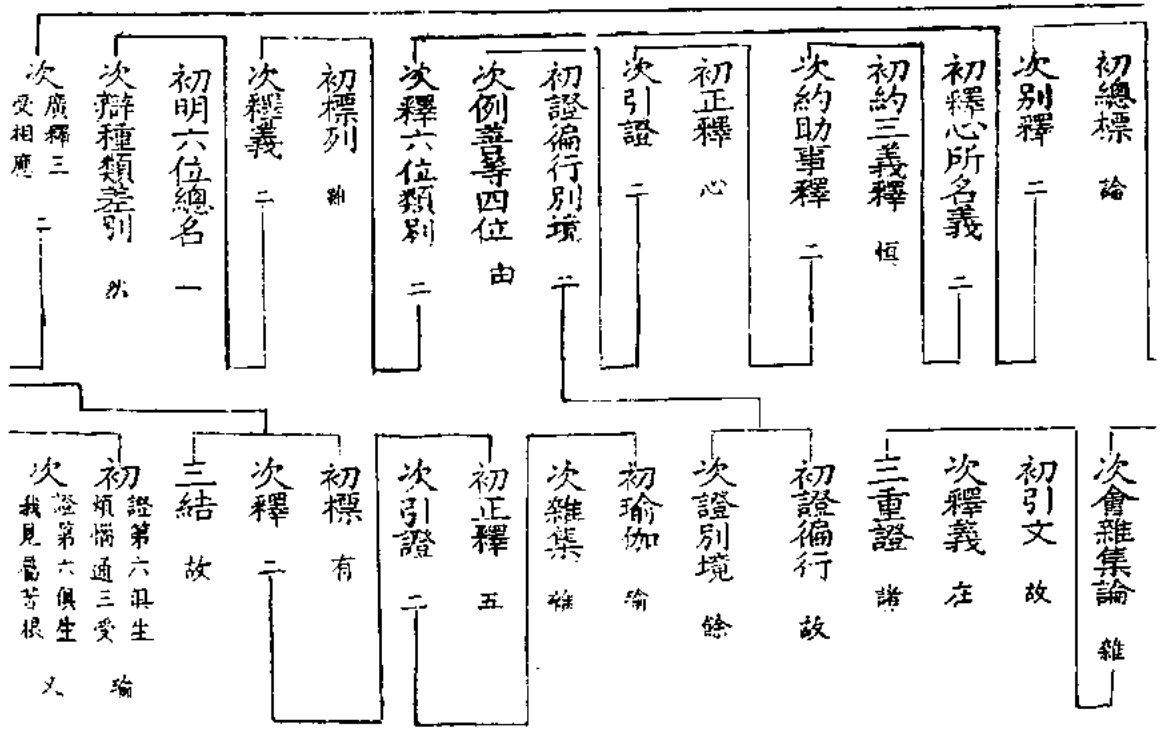 初總標 論
次別釋 二
初釋心所名義 二
初約三義釋 恒
次約助事釋 二
初正釋 心
次引證 二
初證徧行別境 二
次例善等四位 由
次釋六位類別 二
初標列
次釋義 二
初明六位總名 一
次辯種類差別 然
次廣釋三受相應 二
次會雜集論 雜
初引文 故
次釋義 在
三重證 諸
初證徧行 故
次證別境 餘
初瑜伽 瑜
次雜集 雜
初正釋 五
次引證 二
初標 有
次釋 二
三結 故
初證第六俱生煩惱通三受 瑜
次證第六俱生我見唯苦根 又